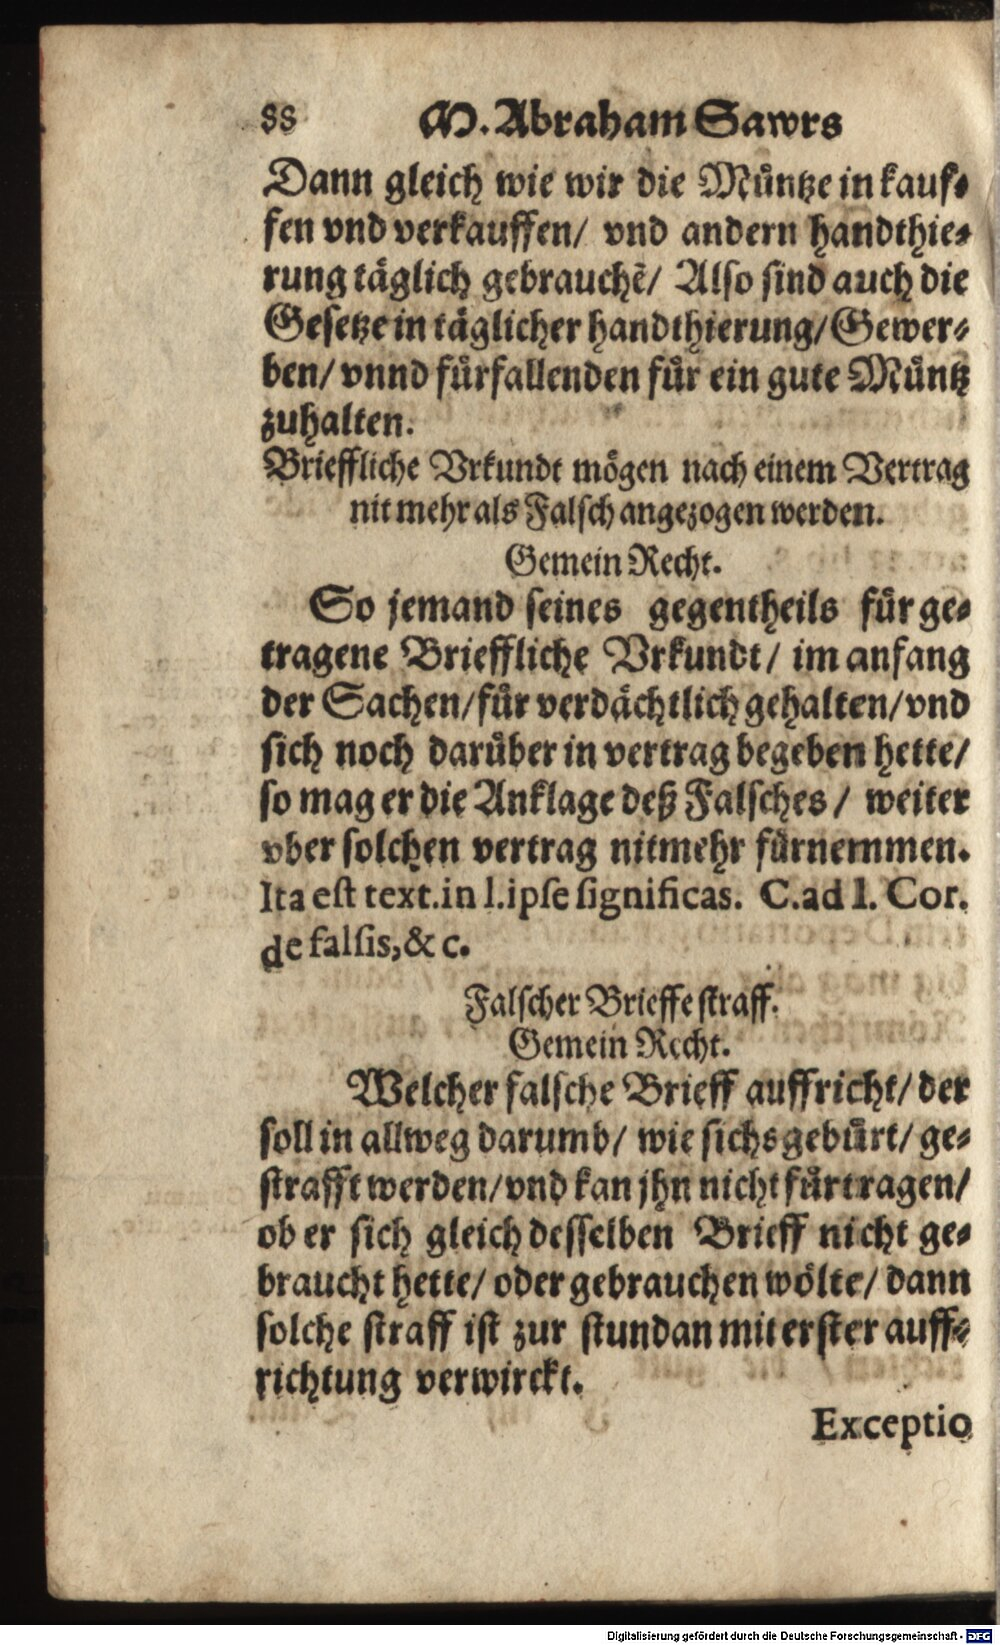 88 M. Abraham Sawrs
Dann gleich wie wir die Müntze in kauf-
fen vnd verkauffen/ vnd andern handthie-
rung täglich gebrauchẽ/ Also sind auch die
Gesetze in täglicher handthierung/ Gewer-
ben/ vnnd fürfallenden für ein gute Müntz
zuhalten.
Brieffliche Vrkundt mögen nach einem Vertrag
nit mehr als Falsch angezogen werden.
Gemein Recht.
So jemand seines gegentheils für ge-
tragene Brieffliche Vrkundt/ im anfang
der Sachen/ für verdächtlich gehalten/ vnd
sich noch darüber in vertrag begeben hette/
so mag er die Anklage deß Falsches/ weiter
vber solchen vertrag nitmehr fürnemmen.
Ita est text. in l. ipse significas. C. ad l. Cor.
de falsis, & c.
Falscher Brieffe straff.
Gemein Recht.
Welcher falsche Brieff auffricht/ der
soll in allweg darumb/ wie sichs gebürt/ ge-
strafft werden/ vnd kan jhn nicht fürtragen/
ob er sich gleich desselben Brieff nicht ge-
braucht hette/ oder gebrauchen wölte/ dann
solche straff ist zur stundan mit erster auff-
richtung verwirckt.
Exceptio
Digitalisierung gefördert durch die Deutsche Forschungsgemeinschaft - DFG